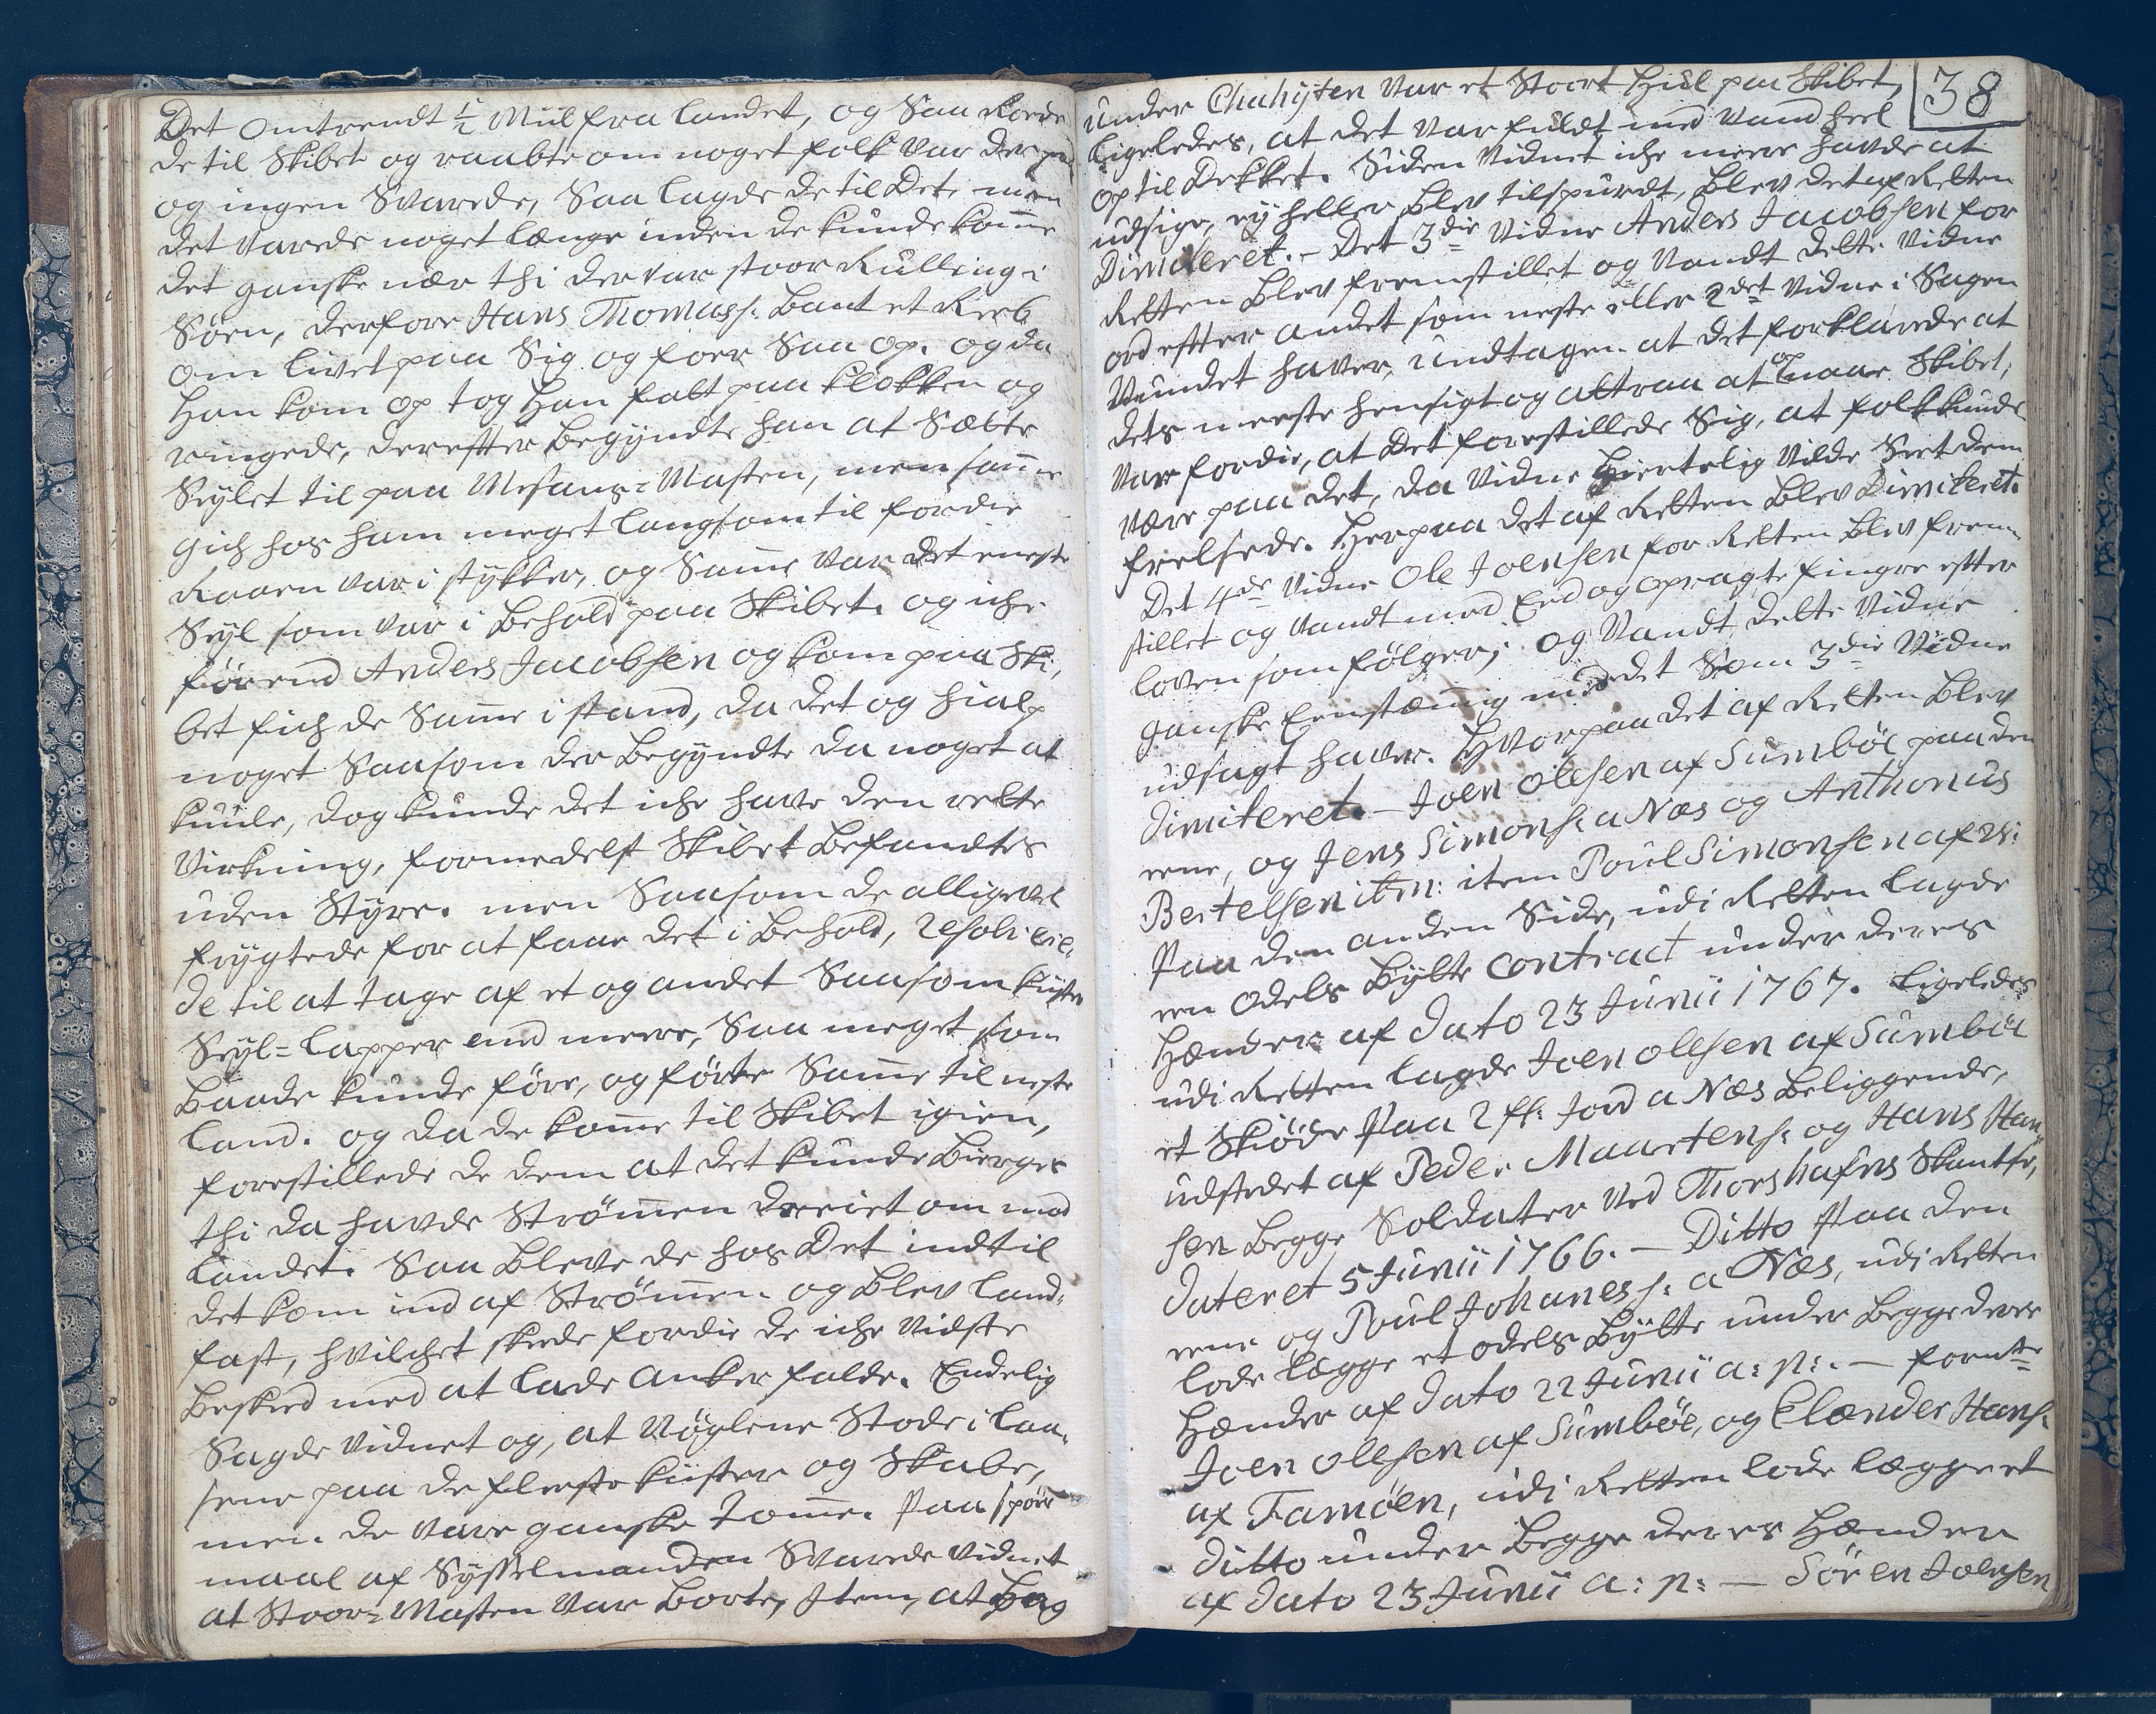 Det omtrendt 1/2 Miil fra landet, og Saa Roede
de til Skibet og raabte om noget folk var der paa
og ingen Svarede, Saa lagde de til Det, men
det varede noget længe inden de kunde komme
det ganske nær thi der var stoor Rulling i
Søen, derfore Hans Thomass: bant et Reeb
om livet paa Sig og foer Saa op. og da
Han kom op tog Han fatt paa Klokken og
ringede, derefter begyndte han at Sætte
Seylet til paa Mesans-Masten, men samme
gich hos ham meget langsom til fordie
Raaen var i stykker, og Samme var det eneste
Seyl som var i behold paa Skibet. og iche
førend Anders Jacobsen og kom paa Ski,
bet fich de Samme i stand, da det og hialp
noget Saasom der begyndte da noget at
kuule, dog kunde det iche have den rette
Virkning, formedelst Skibet befandtes
uden Styre. men Saasom de alligevel
frygtede for at faae det i behold, resolvere,
de til at tage af et og andet Saasom Kister
Seyl-lapper med mere, Saa meget som
Baade kunde føre, og førte Samme til neste
land. og da de komme til Skibet igien,
forestillede de dem at det kunde bierges
thi da havde Strømmen dreiet om mod
landet. Saa bleve de hos Det indtil
det kom ind af Strømmen og blev land,
fast, hvilchet skede fordie de iche vidste
beskeed med at lade Anker falde. Endelig
Sagde vidnet og, at Nøglene Stode i laa,
sene paa de fleeste Kister og Skabe,
men de vare ganske tomme. Paa spørs
maal af Sysselmanden Svarede vidnet
at Stoor-Masten var borte, Item, at bag
38
under Chahyten var et Stoort Hul paa Skibet,
ligeledes, at det var fuldt med Vand heel
op til Dekket. Siden vidnet iche mere havde at
udsige, ey heller blev tilspurdt, blev det af Retten
Dimiteret. - Det 3die Vidne Anders Jacobsen for
Retten blev fremstillet og Vandt dette Vidne
ord efter andet som neste eller 2det Vidne i Sagen
Vundet haver, undtagen at det forklarede at
dets meeste hensigt og attraa at opnaae Skibet,
var fordie, at Det forestillede Sig, at folk kunde
være paa det, da Vidne hiertelig vilde Seet dem
frelsede. Herpaa det af Retten blev Dimiteret.
Det 4de Vidne Ole Joensen for Retten blev frem
stillet og Vandt med Eed og opragte fingre efter
loven som følger; og Vandt dette Vidne
ganske Eenstæmig med det Som 3die Vidne
udsagt haver. Hvorpaa det af Retten blev
dimiteret. - Joen Olesen af Sumbøe paa den
eene, og Jens Simons: a Næs og Anthonius
Bertelsen ibm: item Poul Simonsen af Vi:
Paa den anden Side, udi Retten lagde
een Odels Bytte Contract under deres
Hænder af Dato 23 Junii 1767. Ligeledes
udi Retten lagde Joen Olesen af Sumbøe
et Skiøde Paa 2 ff: Jord a Næs beliggende,
udstedet af Peder Maartens: og Hans Han,
sen begge Soldater ved Thorshafns Skantse,
dateret 5 Junii 1766. - Ditto Paa den
eene og Poul Johaness: a Næs, udi Retten
lode lægge et odels Bytte under begge deres
Hænder af Dato 22 Junii a: p:. - fornte
Joen Olesen af Sumbøe, og Clænder Hans:
af Famøen, udi Retten lode lægge et
ditto under begge deres Hænder
af Dato 23 Junii a: p: - Sören Joensen